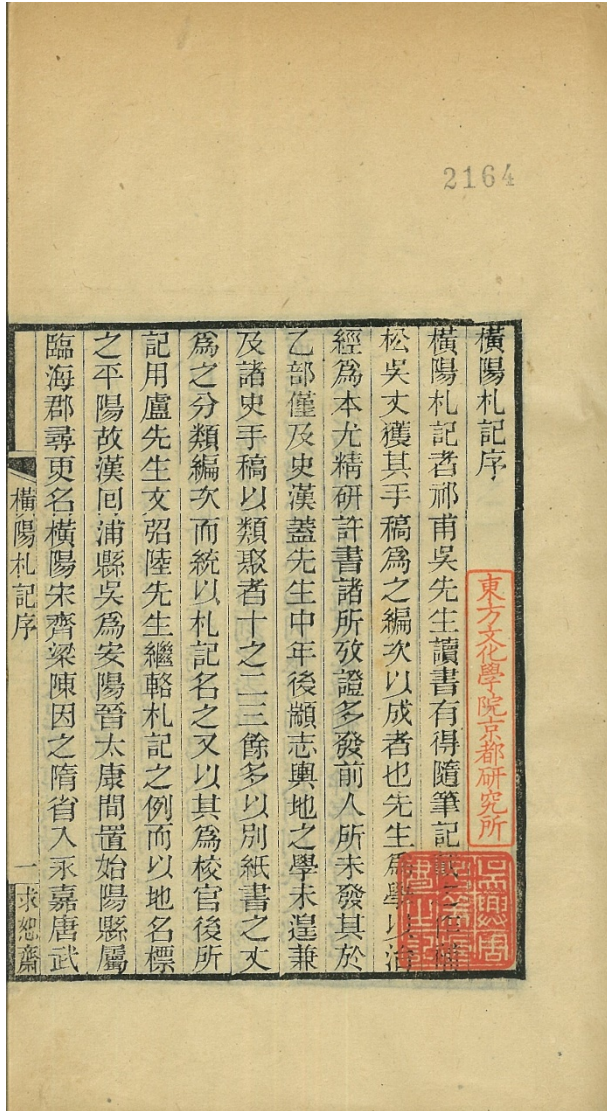 2164
橫陽札記序
橫陽札記者祁甫吳先生讀書有得隨筆記載之補
松吳丈獲其手稿爲之編次以成者也先生爲學以治
經爲本尤精硏許書諸所攷證多發前人所未發其於
乙部僅及史漢蓋先生中年後顓志輿地之學未遑兼
及諸史手稿以類聚者十之二三餘多以別紙書之丈
爲之分類編次而統以札記名之又以其爲校官後所
記用盧先生文弨陸先生繼輅札記之例而以地名標
之平陽故漢回浦縣吳爲安陽晉太康間置始陽縣屬
臨海郡尋更名橫陽宋齊梁陳因之隋省入永嘉唐武
橫陽札記序
一
求恕齋
東方文化學院京都研究所